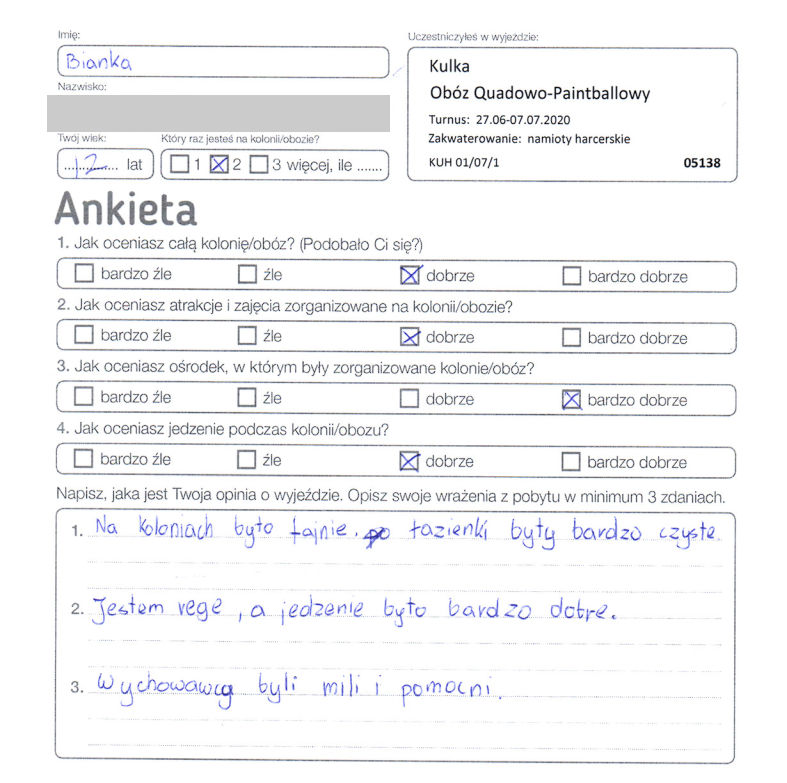 Imię:
Bianka
Uczestniczyłeś w wyjeździe:
Kulka
Obóz Quadowo-Paintballowy
Turnus: 27.06-07.07.2020
Zakwaterowanie: namioty harcerskie
KUH 01/07/1 05138
Nazwisko:
Twój wiek:
12 lat
Który raz jesteś na kolonii/obozie?
1 2 3 więcej, ile .......
Ankieta
1. Jak oceniasz całą kolonię/obóz? (Podobało Ci się?)
bardzo źle źle dobrze bardzo dobrze
2. Jak oceniasz atrakcje i zajęcia zorganizowane na kolonii/obozie?
bardzo źle źle dobrze bardzo dobrze
3. Jak oceniasz ośrodek, w którym były zorganizowane kolonie/obóz?
bardzo źle źle dobrze bardzo dobrze
4. Jak oceniasz jedzenie podczas kolonii/obozu?
bardzo źle źle dobrze bardzo dobrze
Napisz, jaka jest Twoja opinia o wyjeździe. Opisz swoje wrażenia z pobytu w minimum 3 zdaniach.
1. Na koloniach było fajnie. łazienki były bardzo czyste.
2. Jestem vege, a jedzenie było bardzo dobre.
3. Wychowawcy byli mili i pomocni.